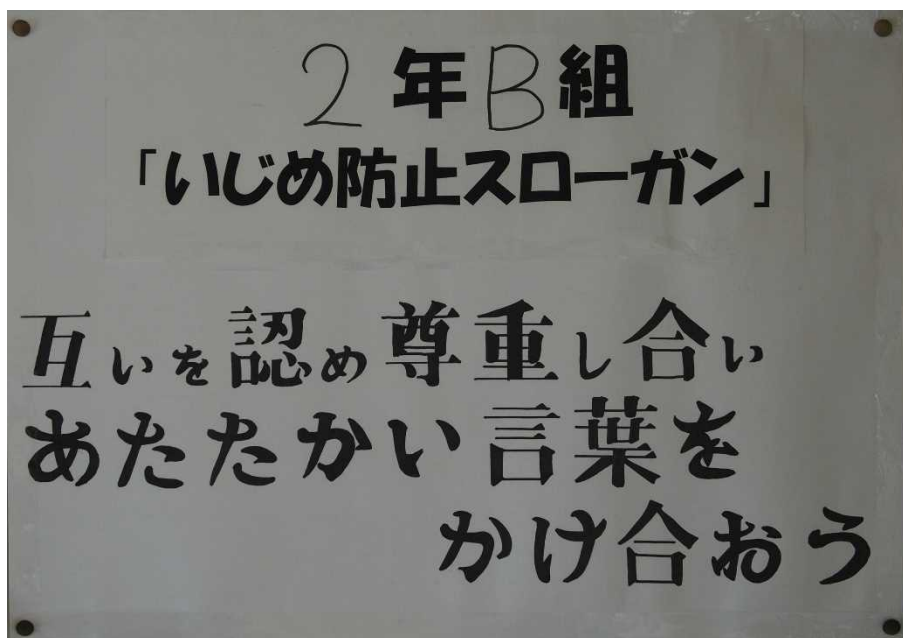 2年B組
「いじめ防止スローガン」
互いを認め尊重し合い
あたたかい言葉を
かけ合おう